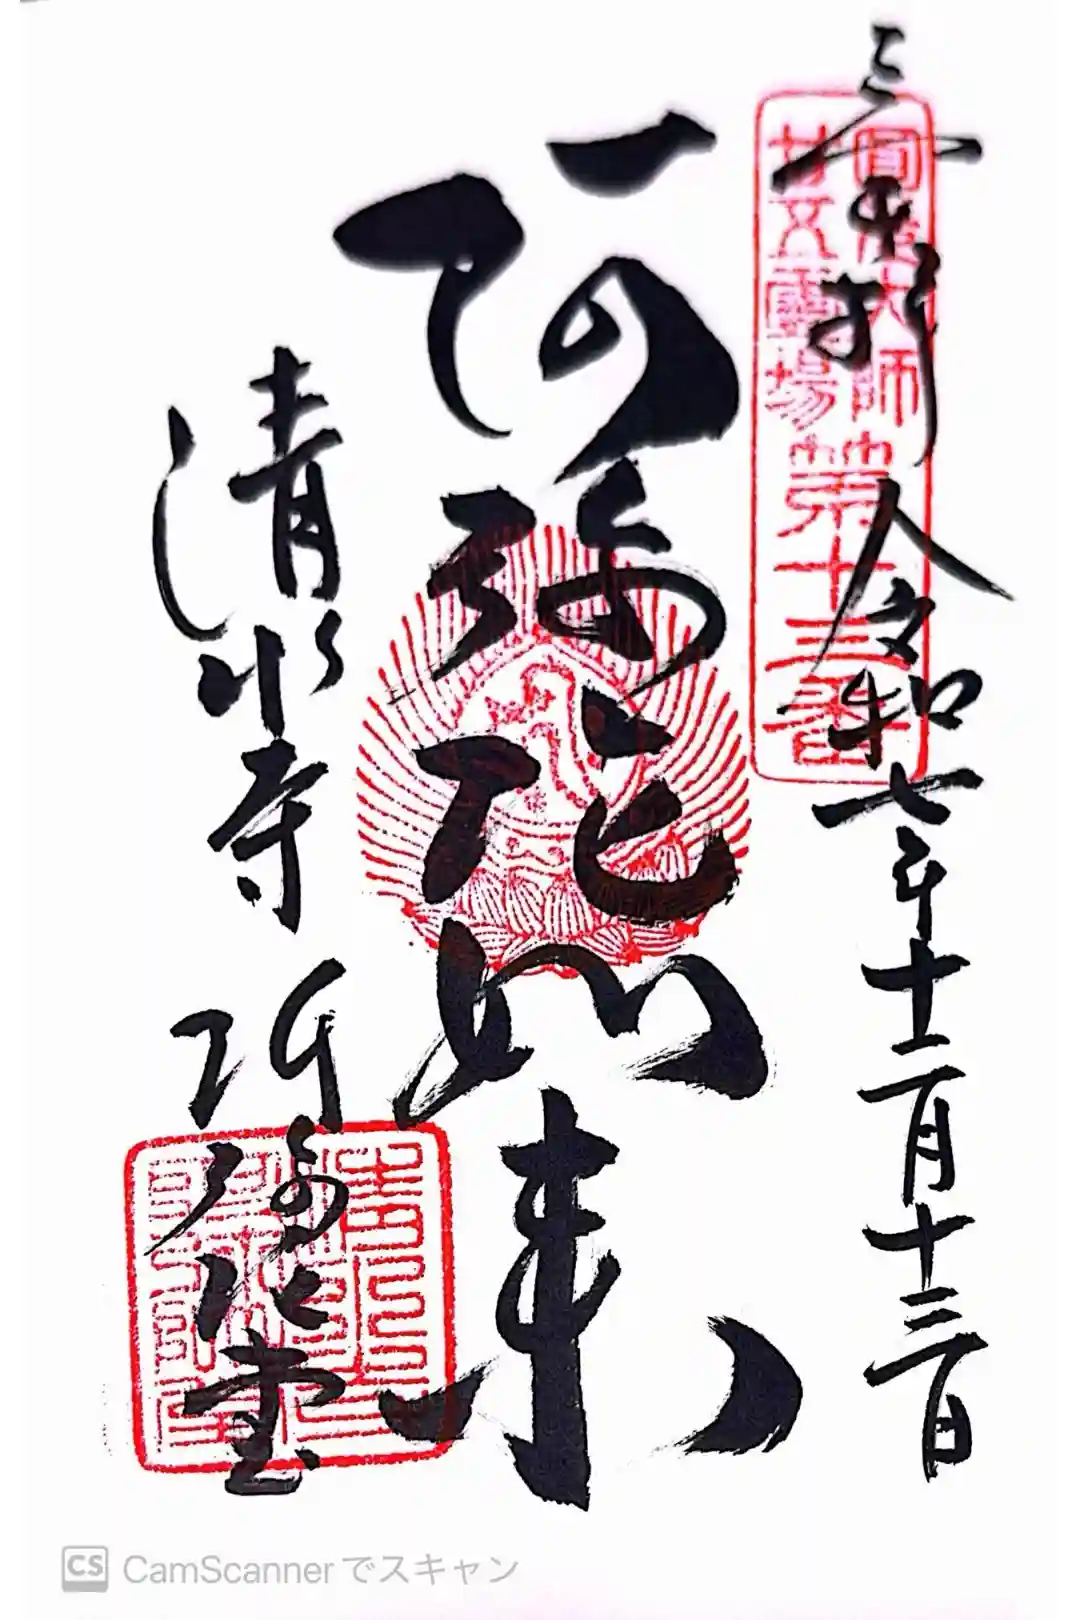 奉拝 令和七年十二月十三日
圓光大師
廿五霊場
第十三番
阿弥陀如来
清水寺 阿弥陀堂
CS CamScannerでスキャン